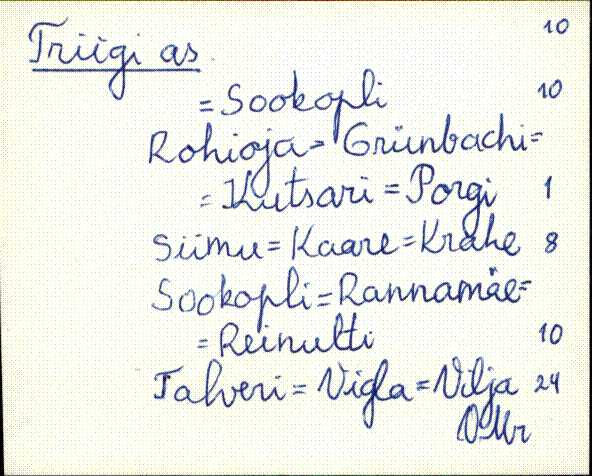 Triigi as. 10
= Sookopli 10
Rohioja = Grünbachi =
= Kutsari = Porgi 1
Siimu = Kaare = Krahe 8
Sookopli = Rannamäe =
= Reinulti 10
Talveri = Vigla = Vilja 24